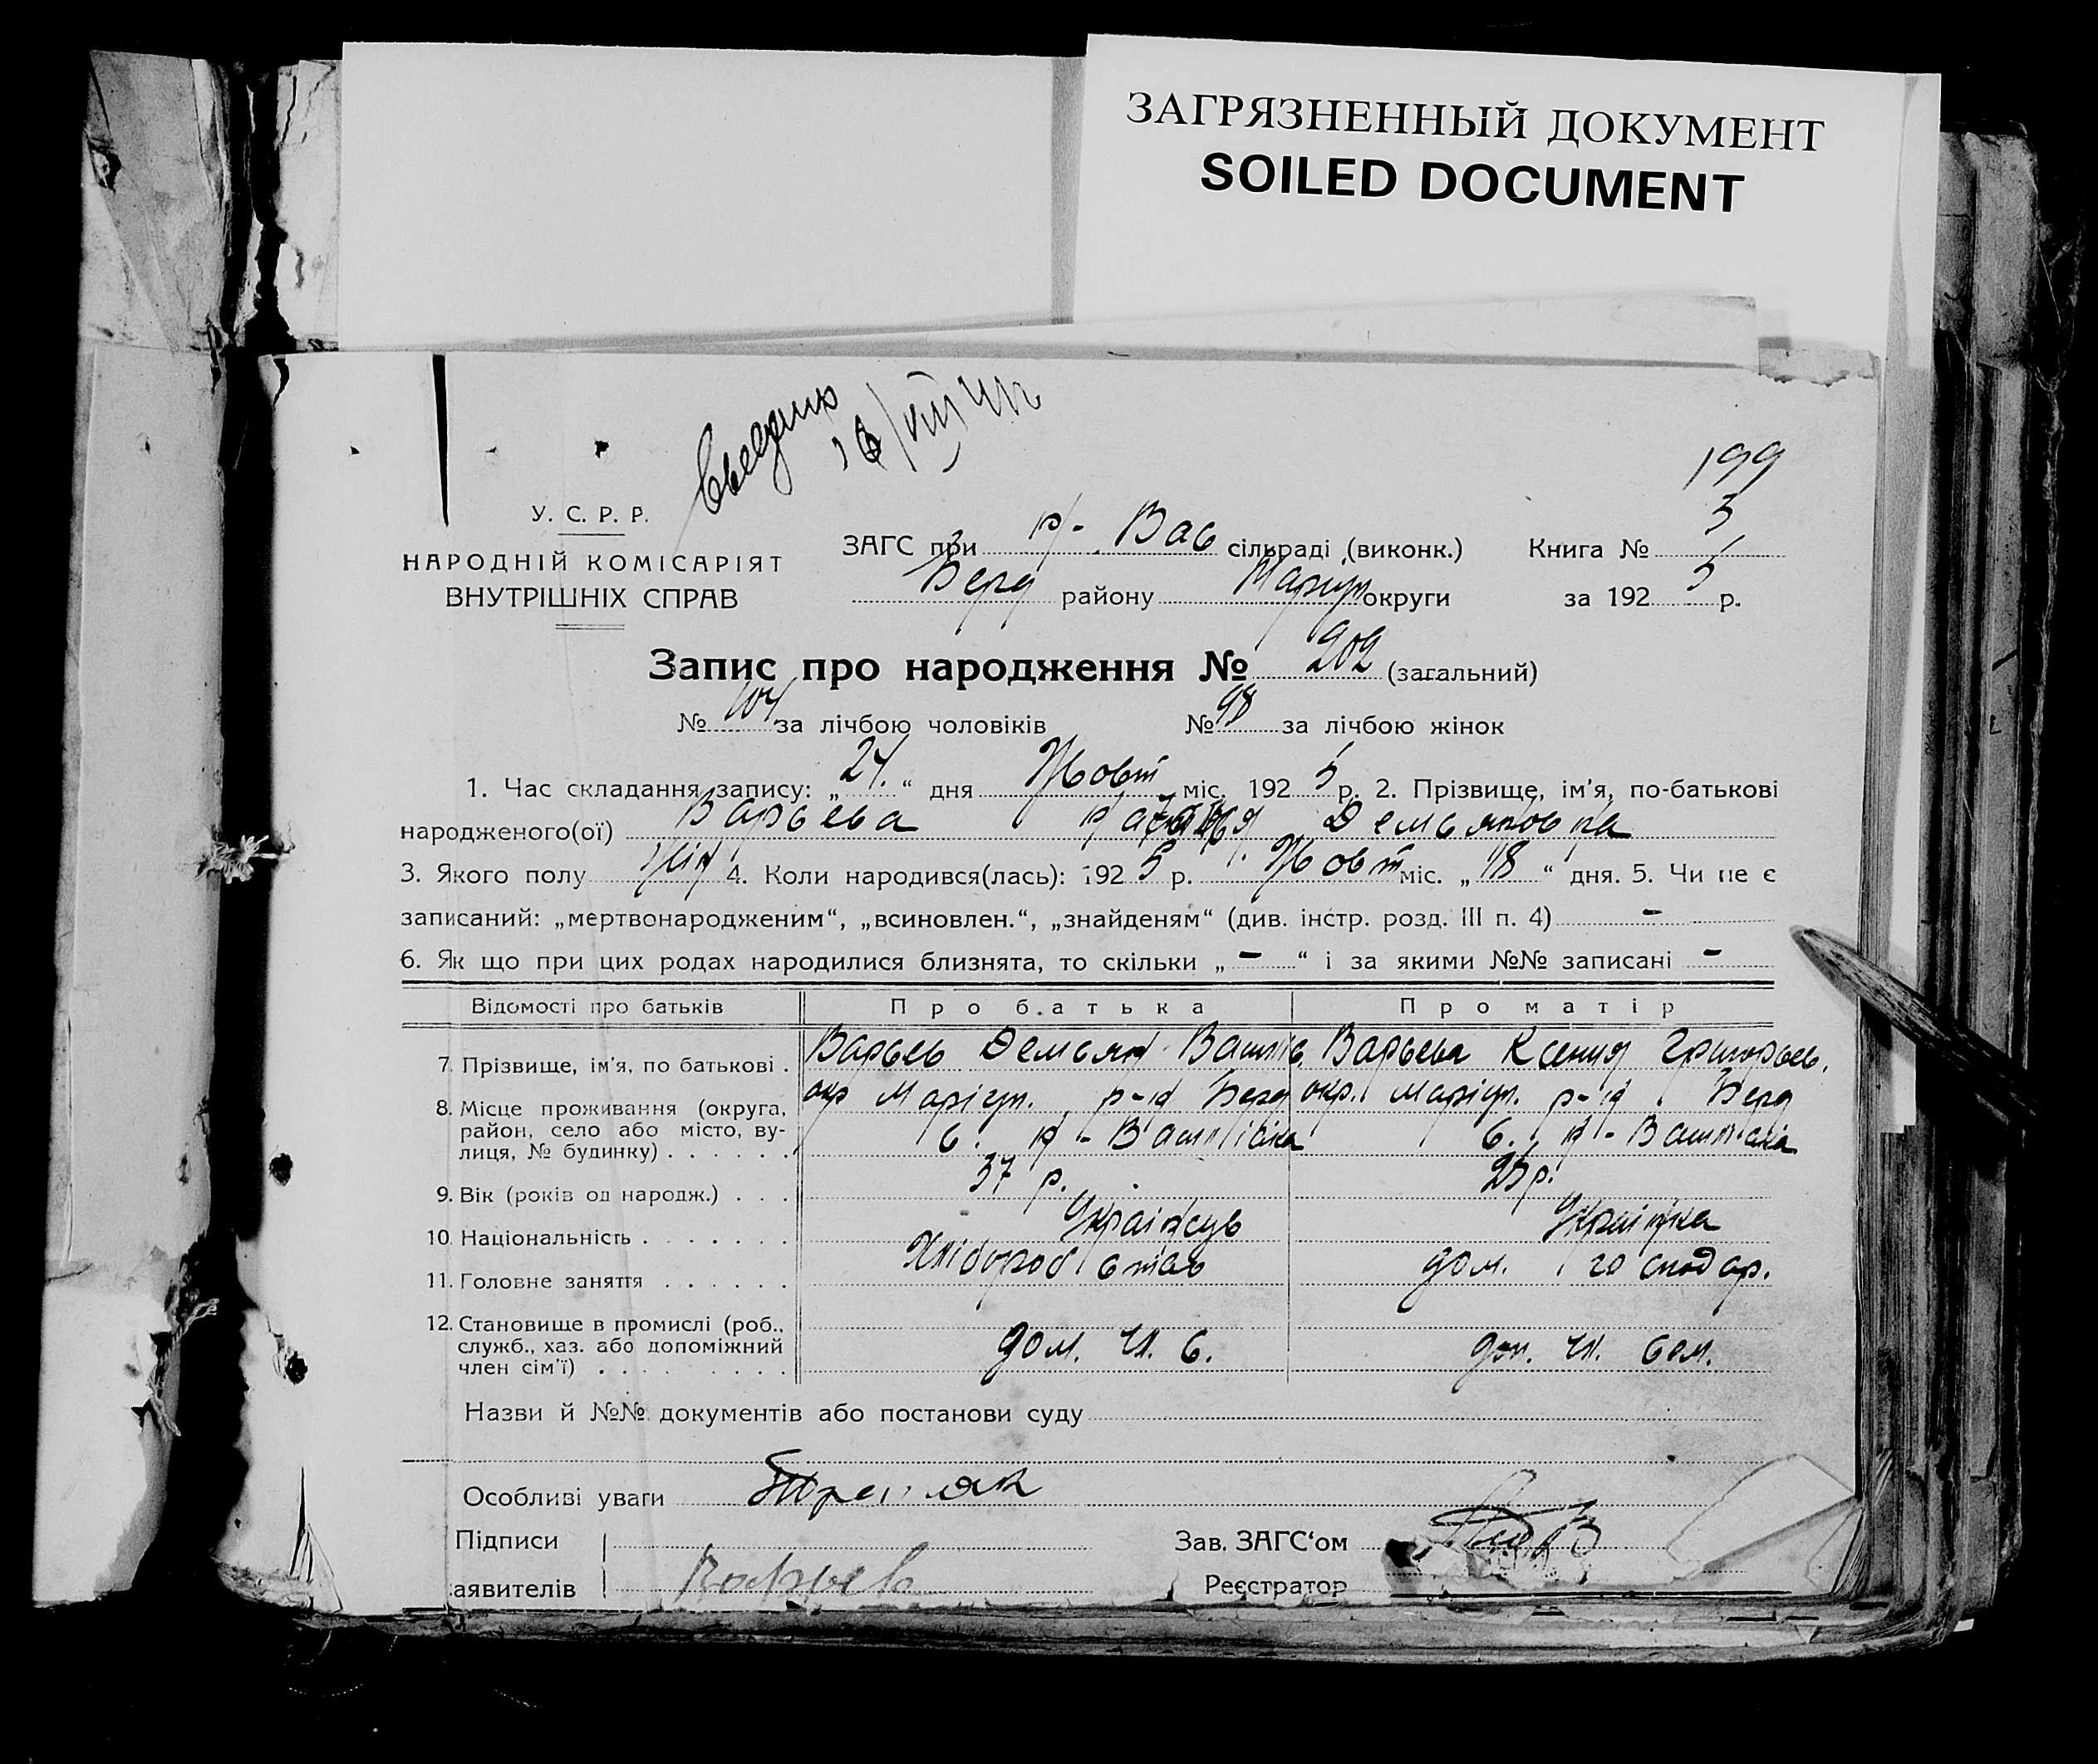 ЗАГРЯЗНЕННЫЙ ДОКУМЕНТ
SOILED DOCUMENT
199
У. С. Р. Р.
НАРОДНІЙ КОМІСАРІЯТ
ВНУТРІШНІХ СПРАВ
ЗАГС при Н- Вас сільраді (виконк.) Книга № 3
Берд району Маріуп округи за 1925 р.
Запис про народження № 202 (загальний)
№ 104 за лічбою чоловіків № 98 за лічбою жінок
1. Час складання запису: „24.“ дня Жовт міс. 1925 р. 2. Прізвище, ім'я, по-батькові
народженого(ої) Варьева Демьяновна
3. Якого полу жін 4. Коли народився(лась): 1925 р. Жовт міс. „18“ дня. 5. Чи не є
записаний: „мертвонародженим“, „всиновлен.“, „знайденям“ (див. інстр. розд. III п. 4) -
6. Як що при цих родах народилися близнята, то скільки „-“ і за якими №№ записані -
Відомості про батьків Про батька Про матір
7. Прізвище, ім'я, по батькові . Варьев Демьян Васил Варьева Ксения Григорьев.
8. Місце проживання (округа, район, село або місто, ву-лиця, № будинку) . . . . . . окр Маріуп. р-н Берд окр. Маріуп. р-н Берд
с. Н-Василівка с. Н-Василівка
9. Вік (років од народж.) . . . 37 р. 25 р.
10. Національність . . . . . . . Українець Українка
11. Головне заняття . . . . . . Хлібороб дом. господар.
12. Становище в промислі (роб., служб., хаз. або допоміжний член сім'ї) . . . . . . . . . дом. чл. с. доп. чл. сем.
Назви й №№ документів або постанови суду
Особливі уваги
Підписи Зав. ЗАГС‘ом
аявителів Варьев Реєстратор